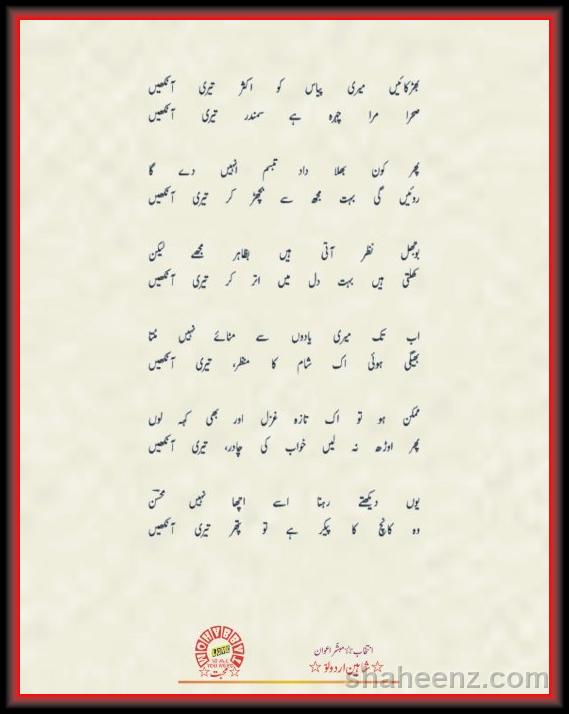 بھڑکائیں میری پیاس کو اکثر تیری آنکھیں
صحرا مرا چہرہ ہے سمندر تیری آنکھیں
پھر کون بھلا داد تبسم انہیں دے گا
روئیں گی بہت مجھ سے بچھڑ کر تیری آنکھیں
بوجھل نظر آتی ہیں بظاہر مجھے لیکن
کھلتی ہیں بہت دل میں اتر کر تیری آنکھیں
اب تک میری یادوں سے مٹائے نہیں مٹتا
بھیگی ہوئی اک شام کا منظر، تیری آنکھیں
ممکن ہو تو اک تازہ غزل اور بھی کہہ لوں
پھر اوڑھ نہ لیں خواب کی چادر، تیری آنکھیں
یوں دیکھتے رہنا اسے اچھا نہیں محسنؔ
وہ کانچ کا پیکر ہے تو پتھر تیری آنکھیں
MOHABBAT
LOVE
IS ALL
YOU NEED
☆محبت☆
انتخاب☆مبشر اعوان
☆شاہین اردو لو☆
shaheenz.com